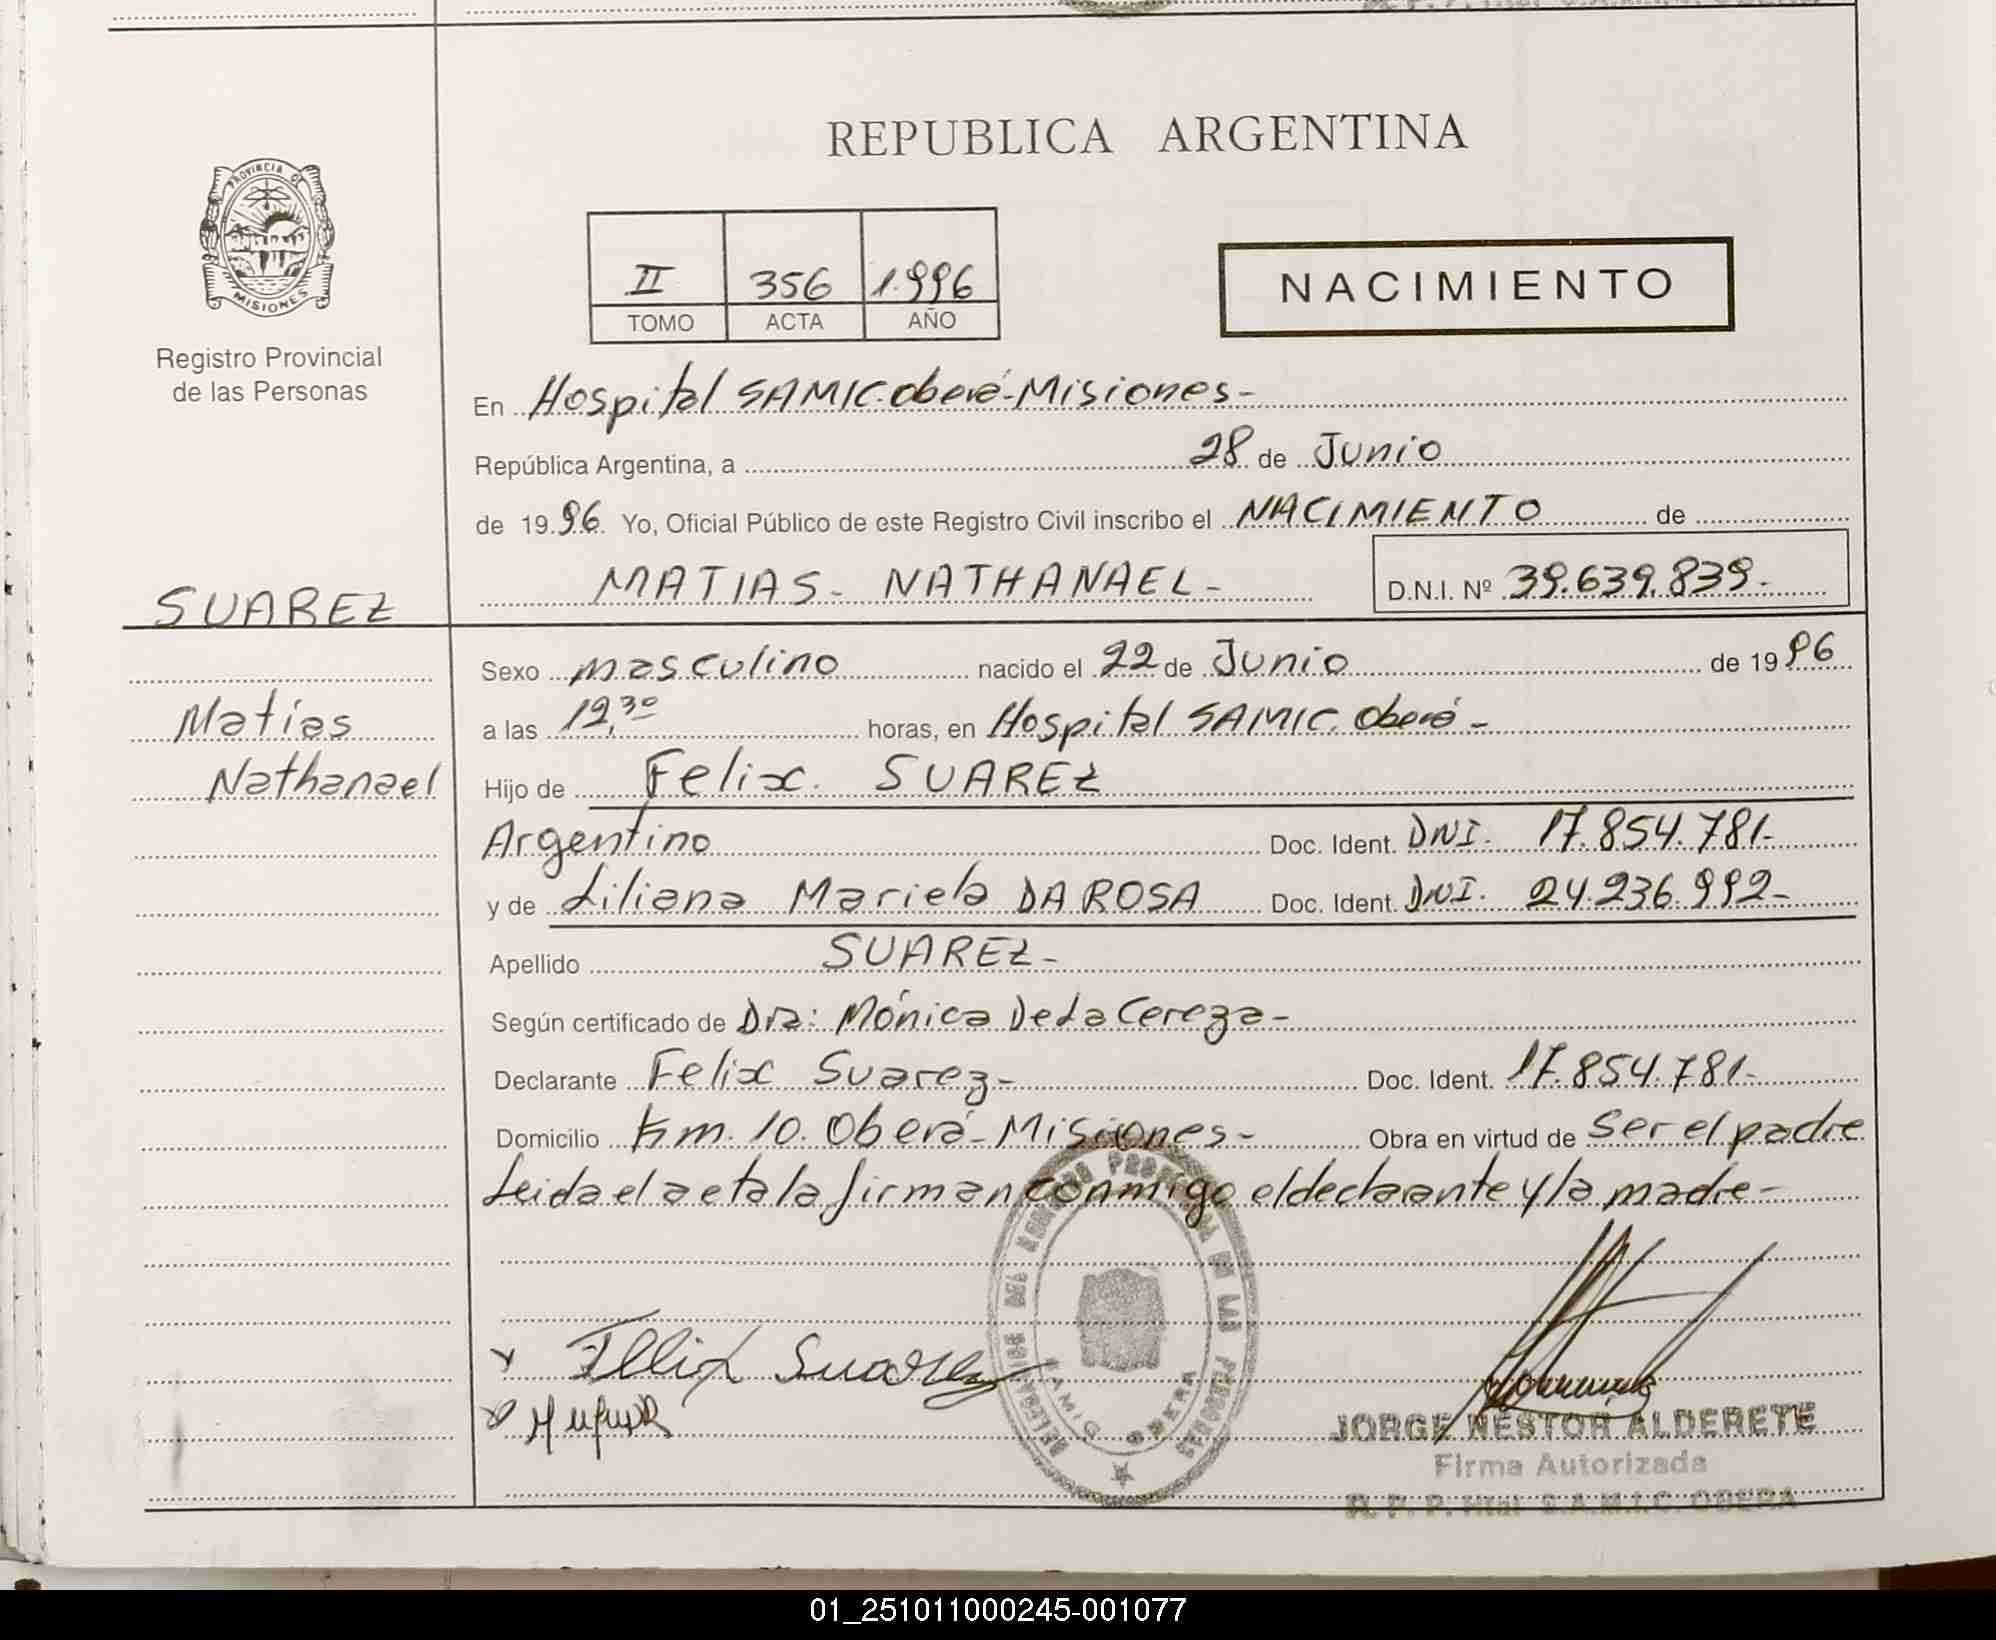 REPUBLICA ARGENTINA
PROVINCIA DE
MISIONES
Registro Provincial
de las Personas
II 356 1.996
TOMO ACTA AÑO
NACIMIENTO
En Hospital SAMIC. Oberá - Misiones -
República Argentina, a 28 de Junio
de 19 96. Yo, Oficial Público de este Registro Civil inscribo el NACIMIENTO de
MATIAS - NATHANAEL - D.N.I. Nº 39.639.839.
SUAREZ
Matías
Nathanael
Sexo masculino nacido el 22 de Junio de 19 96
a las 12,30 horas, en Hospital SAMIC. Oberá -
Hijo de Felix. SUAREZ
Argentino Doc. Ident. DNI. 17.854.781-
y de Liliana Mariela DA ROSA Doc. Ident. DNI. 24.236.992-
Apellido SUAREZ -
Según certificado de Dra: Mónica De La Cereza -
Declarante Felix Suarez - Doc. Ident. 17.854.781-
Domicilio Km. 10. Oberá - Misiones - Obra en virtud de Ser el padre
Leida el acta la firman conmigo el declarante y la madre -
Felix Suarez
JORGE NESTOR ALDERETE
Firma Autorizada
R. P. P. Htal S.A.M.I.C. OBERA
01_251011000245-001077